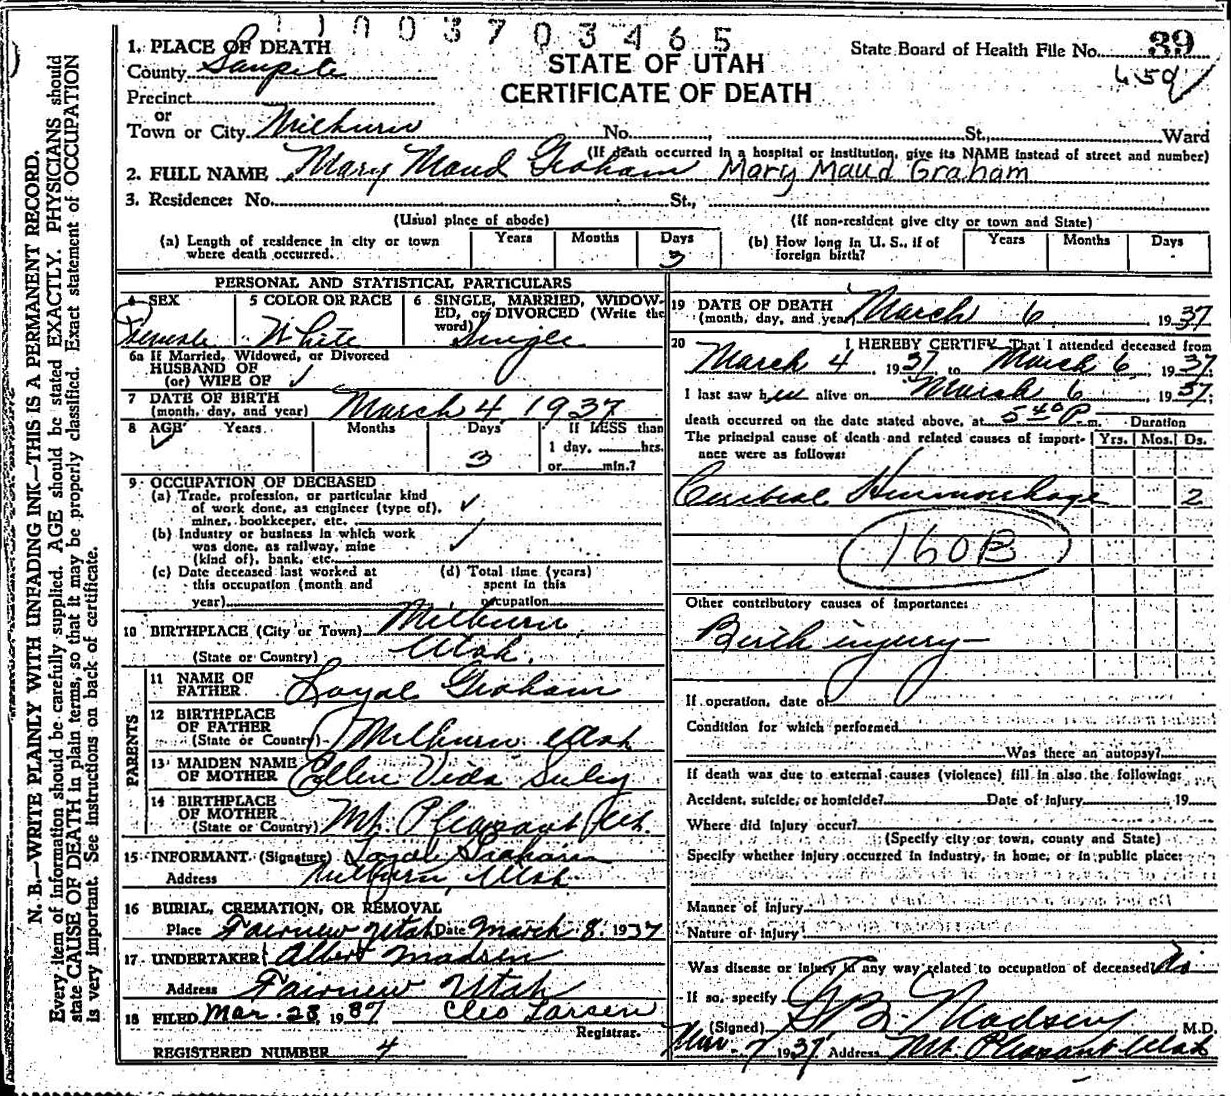 1003703465
1. PLACE OF DEATH
County Sanpete
STATE OF UTAH
CERTIFICATE OF DEATH
State Board of Health File No. 39
Precinct
or
Town or City Milburn No. St, Ward
(If death occurred in a hospital or institution, give its NAME instead of street and number)
2. FULL NAME Mary Maud Graham Mary Maud Graham
3. Residence: No. St.,
(Usual place of abode) (If non-resident give city or town and State)
(a) Length of residence in city or town where death occurred. Years Months Days 3
(b) How long in U. S., if of foreign birth? Years Months Days
PERSONAL AND STATISTICAL PARTICULARS
4 SEX Female
5 COLOR OR RACE White
6 SINGLE, MARRIED, WIDOWED, or DIVORCED (Write the word) Single
6a If Married, Widowed, or Divorced
HUSBAND OF
(or) WIFE OF ✓
7 DATE OF BIRTH
(month, day, and year) March 4 1937
8 AGE Years Months Days 3 If LESS than 1 day, hrs. or min.?
9 OCCUPATION OF DECEASED
(a) Trade, profession, or particular kind
of work done, as engineer (type of),
miner, bookkeeper, etc. ✓
(b) Industry or business in which work
was done, as railway, mine
(kind of), bank, etc. ✓
(c) Date deceased last worked at
this occupation (month and
year)
(d) Total time (years)
spent in this
occupation
10 BIRTHPLACE (City or Town) Milburn
(State or Country) Utah.
PARENTS
11 NAME OF
FATHER Loyal Graham
12 BIRTHPLACE
OF FATHER
(State or Country) Milburn Utah
13 MAIDEN NAME
OF MOTHER Ellen Veda
14 BIRTHPLACE
OF MOTHER
(State or Country) Mt. Pleasant Utah.
15 INFORMANT (Signature) Loyal Graham
Address Milburn, Utah.
16 BURIAL, CREMATION, OR REMOVAL
Place Fairview Utah Date March 8. 1937
17 UNDERTAKER Albert Madsen
Address Fairview Utah
18 FILED Mar. 28, 1937 Cleo Larsen
Registrar.
REGISTERED NUMBER 4
19 DATE OF DEATH
(month, day, and year) March 6, 1937
20 I HEREBY CERTIFY That I attended deceased from
March 4, 1937 to March 6, 1937.
I last saw her alive on March 6, 1937;
death occurred on the date stated above, at 5 40 P. m. Duration
The principal cause of death and related causes of importance were as follows: Yrs. Mos. Ds.
Cerebral Hemorrhage 2
160B
Other contributory causes of importance:
Birth injury
If operation, date of
Condition for which performed
Was there an autopsy?
If death was due to external causes (violence) fill in also the following:
Accident, suicide, or homicide? Date of injury , 19
Where did injury occur?
(Specify city or town, county and State)
Specify whether injury occurred in industry, in home, or in public place:
Manner of Injury
Nature of Injury
Was disease or injury in any way related to occupation of deceased? No
If so, specify
(Signed) Madsen M.D.
Mar. 7 1937 Address Mt. Pleasant Utah
N. B.—WRITE PLAINLY WITH UNFADING INK—THIS IS A PERMANENT RECORD.
Every item of information should be carefully supplied. AGE should be stated EXACTLY. PHYSICIANS should
state CAUSE OF DEATH in plain terms, so that it may be properly classified. Exact statement of OCCUPATION
is very important. See instructions on back of certificate.